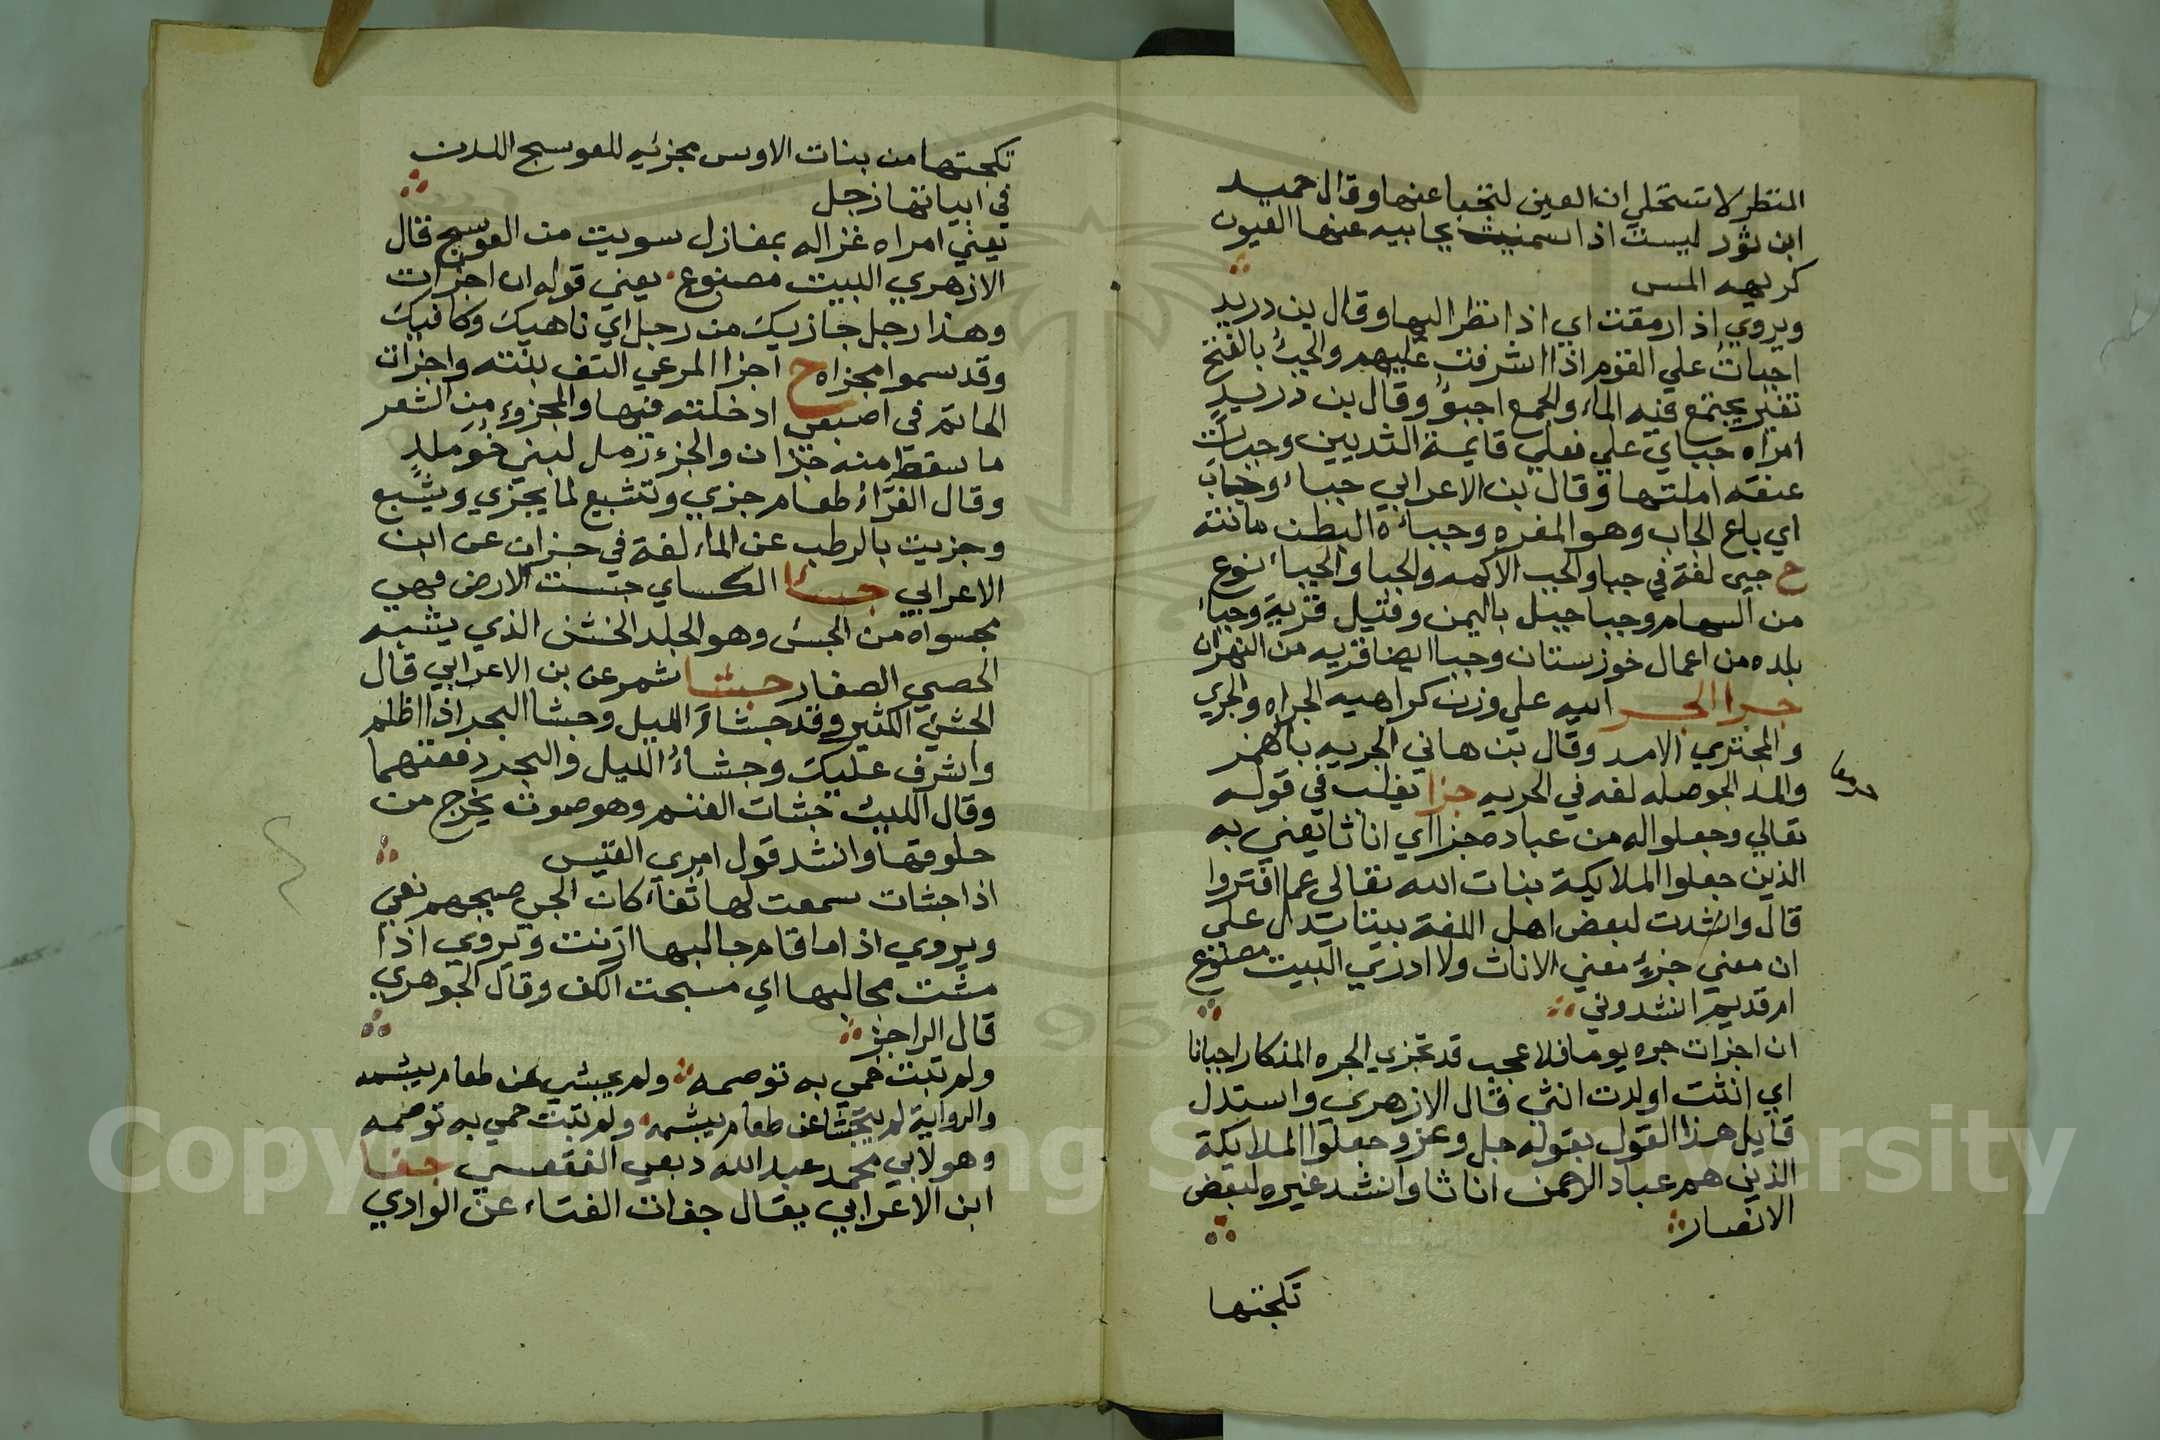 المنظر لا تستحلي ان العين لتجبا عنها وقال حميد
ابن ثور ليست اذا سمنيت بجابيه عنها العيون
كريهه المس
ويروي اذا رمقت اي اذا نظر اليها وقال بن دريد
اجبات علي القوم اذا اشرفت عليهم والجبأ بالفتح
نقير يجتمع فيه الماء والجمع اجبؤ وقال بن دريد
امراه جباي علي فعلي قايمة الثديين وجبات
عنقه املتها وقال بن الاعرابي جباء وجاب
اي باع الجاب وهو المغره وجباءة البطن مانته
ح جبي لغة في جبا والجب الاكمه والجبا والجباء نوع
من السهام وجبا جبل باليمن وقيل قرية وجباء
بلده من اعمال خوزستان وجبا ايضا قريه من النهران
جرا الجر ائيه علي وزن كراهيه الجراه والجري
والمجتري الاسد وقال بن هاني الجريه بالهمز
والمد الحوصله لغه في الجريه جزا ثعلب في قوله
تعالي وجعلوا له من عباده جزا اي اناثا يعني به
الذين جعلوا الملايكة بنات الله تعالي عما افتروا
قال وانشدت لبعض اهل اللغة بيتا يدل علي
ان معني جزء معني الاناث ولا ادري البيت مصنوع
ام قديم انشدوني
ان اجزات حره يوما فلا عجب قد تجزي الحره المذكار احيانا
اي انثت اولدت انثي قال الازهري واستدل
قايل هذا القول بقوله جل وعز وجعلوا الملايكة
الذين هم عباد الرحمن اناثا وانشد غيره لبعض
الانصار
نكحتها
نكحتها من بنات الاوس مجزئيه للعوسج اللدن
في ابياتها زجل
يعني امراه غزاله بمغازل سويت من العوسج قال
الازهري البيت مصنوع يعني قوله ان اجزات
وهذا رجل جازيك من رجل اي ناهيك وكافيك
وقد سموا مجزاه ح اجزا المرعي التف بنته واجزات
الخاتم في اصبعي ادخلته فيها والمجزوء من الشعر
ما سقط منه جزان والجزء رمل لبني خويلد
وقال الفراء طعام جزي وتشبيع لما يجزي ويشبع
وجزيت بالرطب عن الماء لغة في جزات عن ابن
الاعرابي جسأ الكساي جسئت الارض فهي
مجسواه من الجسئ وهو الجلد الخشن الذي يشبه
الحصي الصغار جشأ شمر عن بن الاعرابي قال
الجشئ الكثير وقد جشاء الليل وجشا البحر اذا اظلم
واشرف عليك وجشاء الليل والبحر دفعتهما
وقال الليث جشات الغنم وهو صوت يخرج من
حلوقها وانشد قول امري القيس
اذا جشات سمعت لها ثغاء كان الحي صبحهم نعي
ويروي اذا ما قام حالبها ارنت ويروي اذا
مشت محالبها اي مسحت الكف وقال الجوهري
قال الراجز
ولم تبت حمي به توصمه ولم يجشئ عن طعام يبشمه
والرواية لم يتجشا عن طعام يبشمه ولم تبت حمي به توصمه
وهو لابي محمد عبد الله ربعي الفقعسي جفا
ابن الاعرابي يقال جفات الغثاء عن الوادي
Copyright © King Saud University